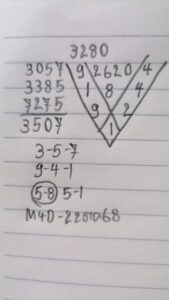 3280
3057 9 2620 4
3385 1 8 4
7275 9 2
3507 1
3-5-7
9-4-1
5-8 5-1